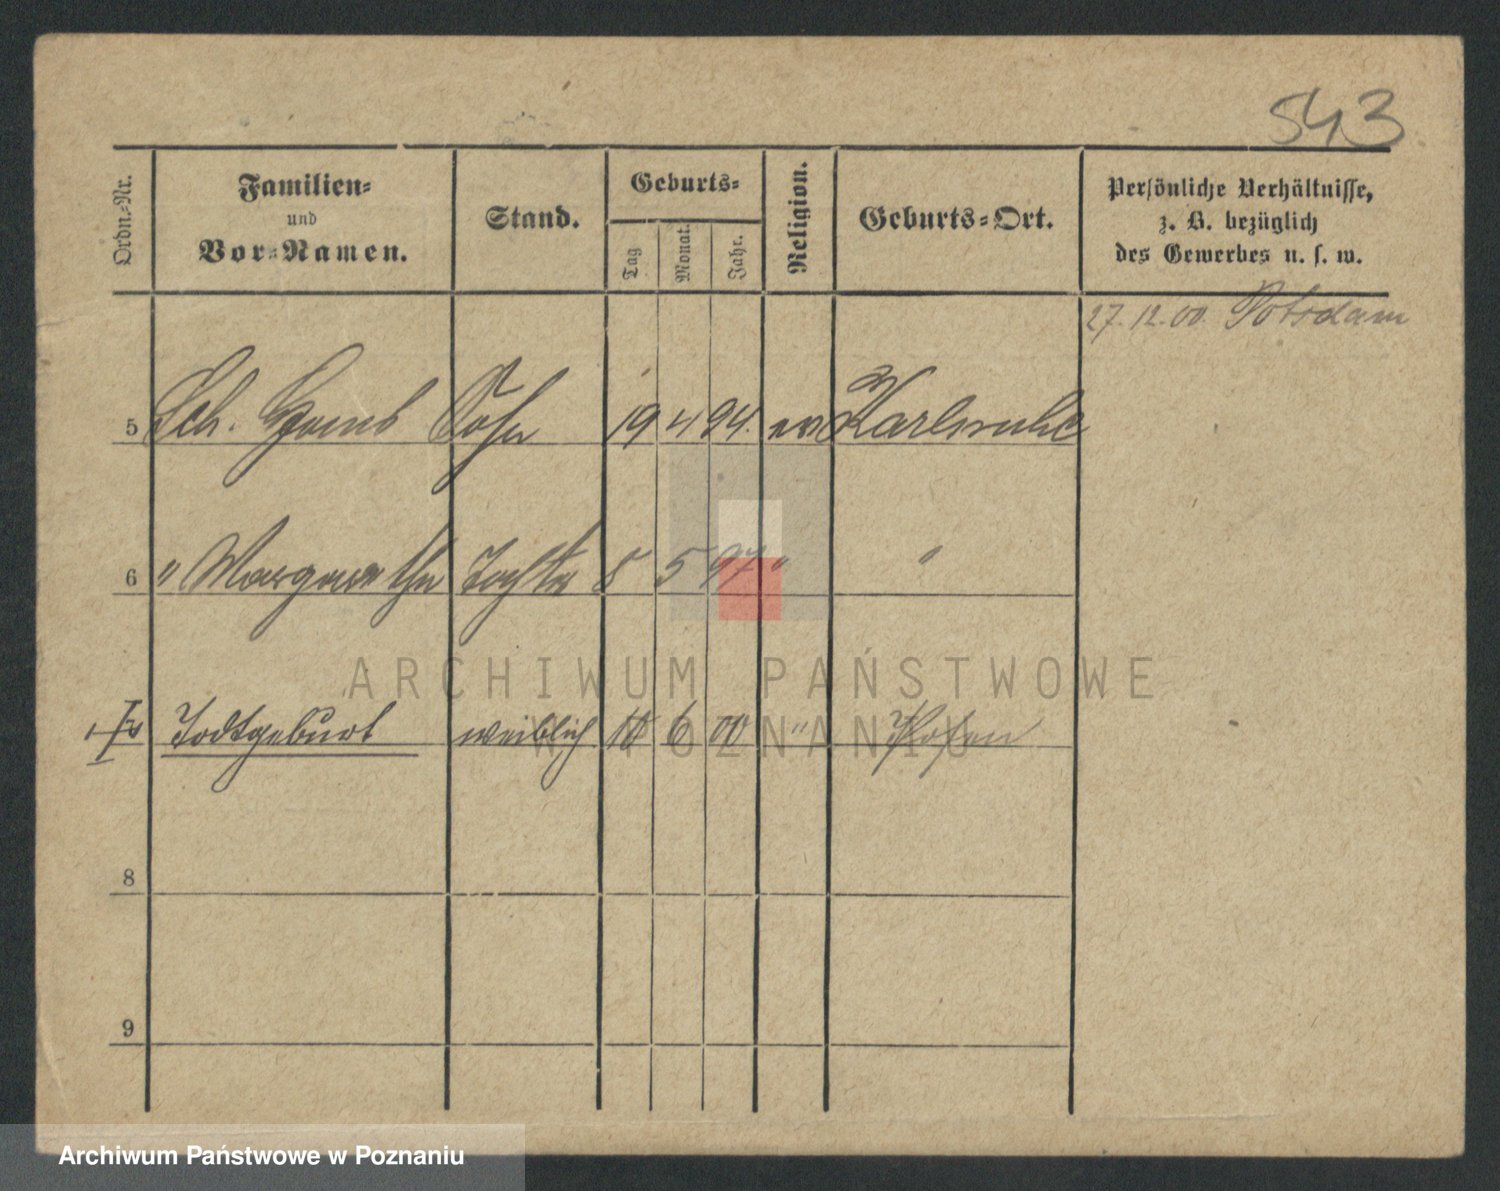 543
Ordn.-Nr.
Familien-
und
Vor-Namen.
Stand.
Geburts-
Tag
Monat.
Jahr.
Religion.
Geburts-Ort.
Persönliche Verhältnisse,
z. B. bezüglich
des Gewerbes u. s. w.
27.12.00. Potsdam
5 Sch. Sohn 19 4 94. ev Karlsruhe
6 " Margarethe Tochter 8 5 97 " "
Todtgeburt weiblich 10 6 00 " Posen
8
9
ARCHIWUM PAŃSTWOWE
W POZNANIU
Archiwum Państwowe w Poznaniu